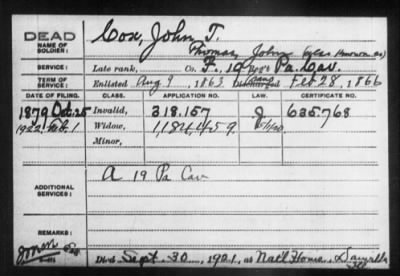 DEAD
NAME OF SOLDIER:
Cox, John T.
Thomas, John
SERVICE:
Late rank, Co. F, 19 Reg't Pa. Cav.
TERM OF SERVICE:
Enlisted Aug 9, 1863 Discharged Feb 28, 1866
DATE OF FILING. CLASS. APPLICATION NO. LAW. CERTIFICATE NO.
1879 Oct. 25 Invalid, 318.157 635.768
1922 Widow, 1184459
Minor,
ADDITIONAL SERVICES:
A 19 Pa Cav
REMARKS:
Died Sept. 30, 1921, at Nat'l Home, Danville